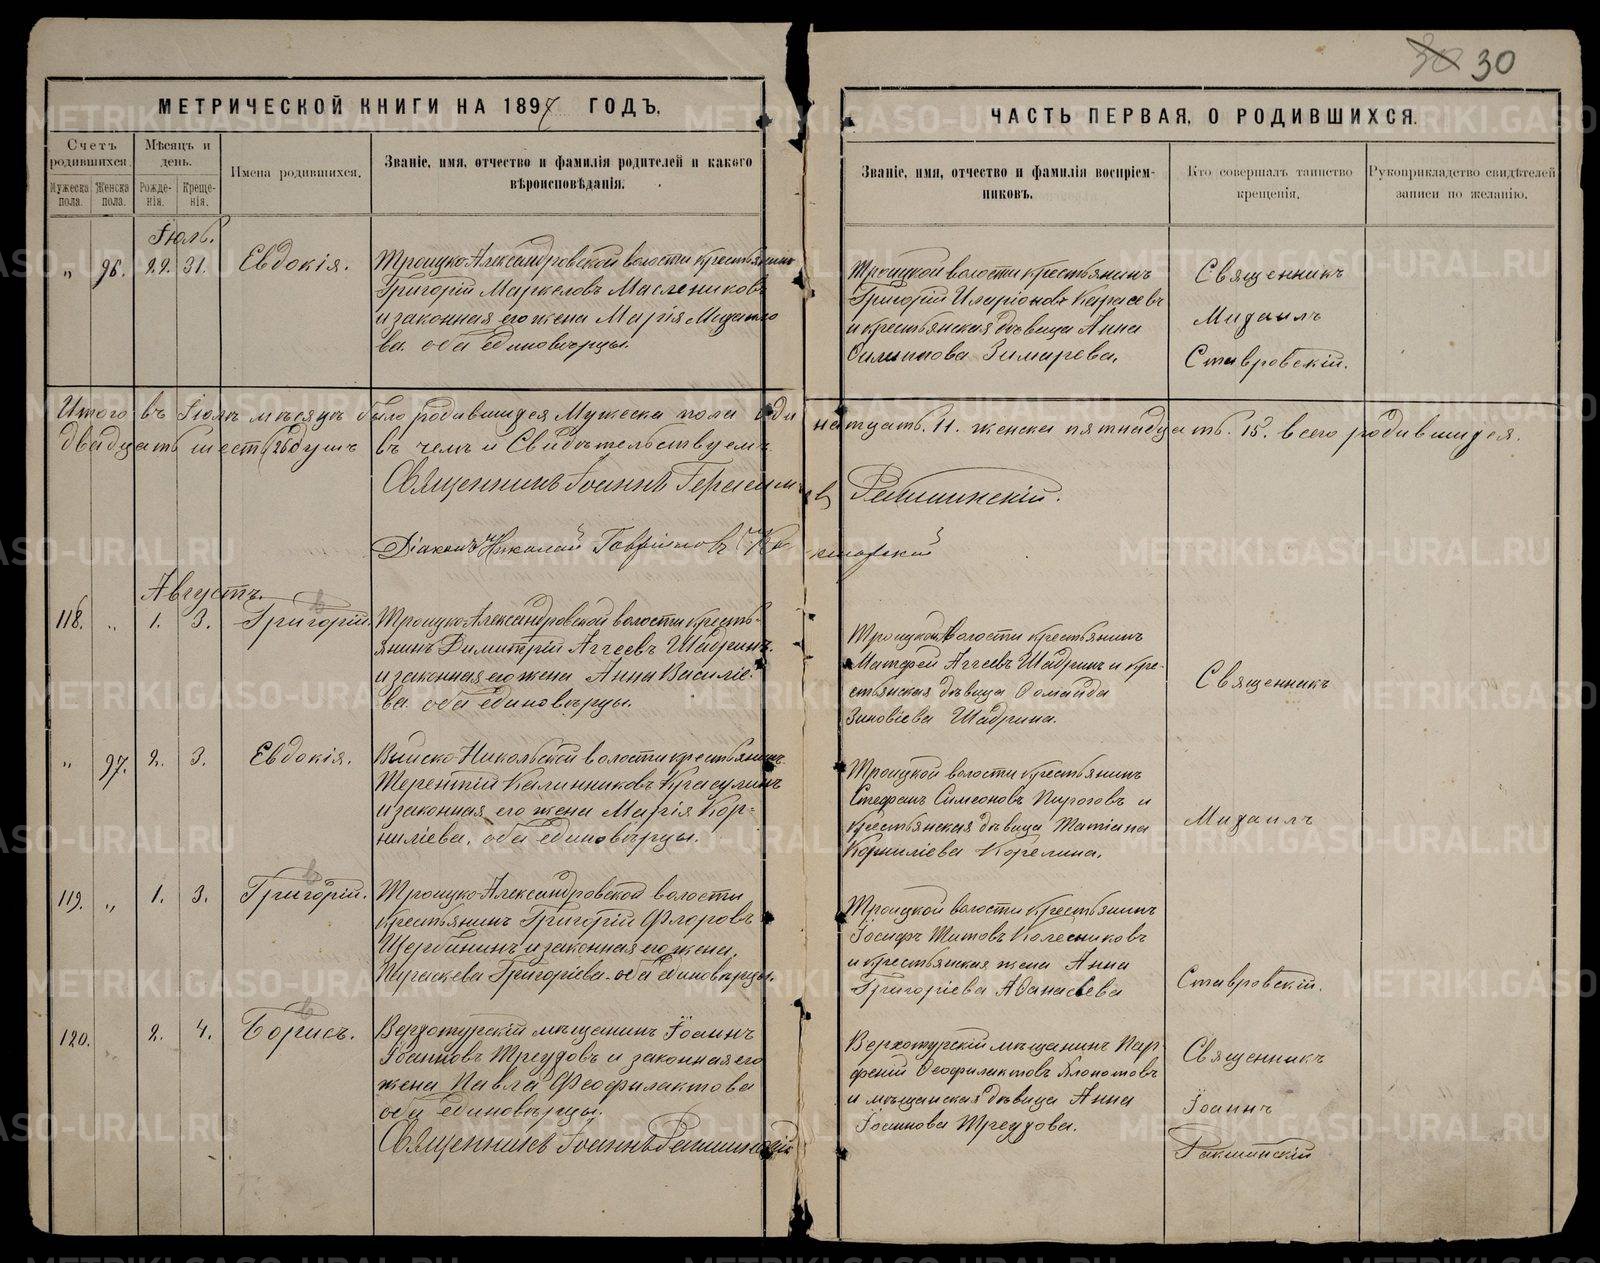 30 30
МЕТРИЧЕСКОЙ КНИГИ НА 189 ГОДЪ,
Счетъ родившихся.
Мѣсяцъ и день.
Имена родившихся.
Званіе, имя, отчество и фамилія родителей и какого
вѣроисповѣданія.
Мужеска пола.
Женска пола.
Рожде-
нія.
Креще-
нія.
ЧАСТЬ ПЕРВАЯ, О РОДИВШИХСЯ.
Званіе, имя, отчество и фамилія воспріем-
никовъ.
Кто совершалъ таинство
крещенія.
Рукоприкладство свидѣтелей
записи по желанію.
Іюль.
„ 96. 29. 31. Евдокія.
Троицко-Александровской волости крестьянинъ
Григорій Маркеловъ Маслениковъ
и законная его жена Марія Михаило
ва. оба единовѣрцы.
Троицкой волости крестьянинъ
Григорій Иларіоновъ Карасевъ
и крестьянская дѣвица Анна
Зимарева.
Священникъ
Михаилъ
Ставровскій.
Итого въ Іюлѣ мѣсяцѣ было родившихся Мужеска пола одиннатцать. 11. женска пятнадцать. 15. всего родившихся.
двадцать шесть (26) душъ въ чемъ и Свидѣтельствуемъ
Священникъ Іоаннъ Герасимовъ Ракшинскій.
Діаконъ Николай
Августъ.
118. „ 1. 3. Григорій.
Троицко-Александровской волости кресть-
янинъ Димитрій Аггеевъ Шадринъ.
и законная его жена Анна Василіе-
ва. оба единовѣрцы.
Троицкой волости крестьянинъ
Матфей Аггеевъ Шадринъ и кре-
стьянская дѣвица Соломонида
Зиновіева Шадрина.
Священникъ
„ 97. 2. 3. Евдокія.
Выйско-Никольской волости крестьянинъ
Терентій Калинниковъ Красулинъ
и законная его жена Марія Кор-
ниліева. оба единовѣрцы.
Троицкой волости крестьянинъ
Стефанъ Симеоновъ Пироговъ и
крестьянская дѣвица Татіана
Корниліева Корелина.
Михаилъ
119. „ 1. 3. Григорій.
Троицко-Александровской волости
крестьянинъ Григорій Флоровъ
Щербининъ и законная его жена
Параскева Григоріева. оба единовѣрцы.
Троицкой волости крестьянинъ
Іосифъ Титовъ Колесниковъ
и крестьянская жена Анна
Григоріева Аѳанасьева
Ставровскій.
120. 2. 4. Борисъ.
Верхотурскій мѣщанинъ Іоаннъ
Іоанновъ Треуховъ и законная его
жена Павла Феофилактова
оба единовѣрцы.
Верхотурскій мѣщанинъ Пар-
феній Феофилактовъ
и мѣщанская дѣвица Анна
Іоаннова Треухова.
Священникъ
Іоаннъ
Ракшинскій
Священникъ Іоаннъ Ракшинскій
METRIKI.GASO-URAL.RU